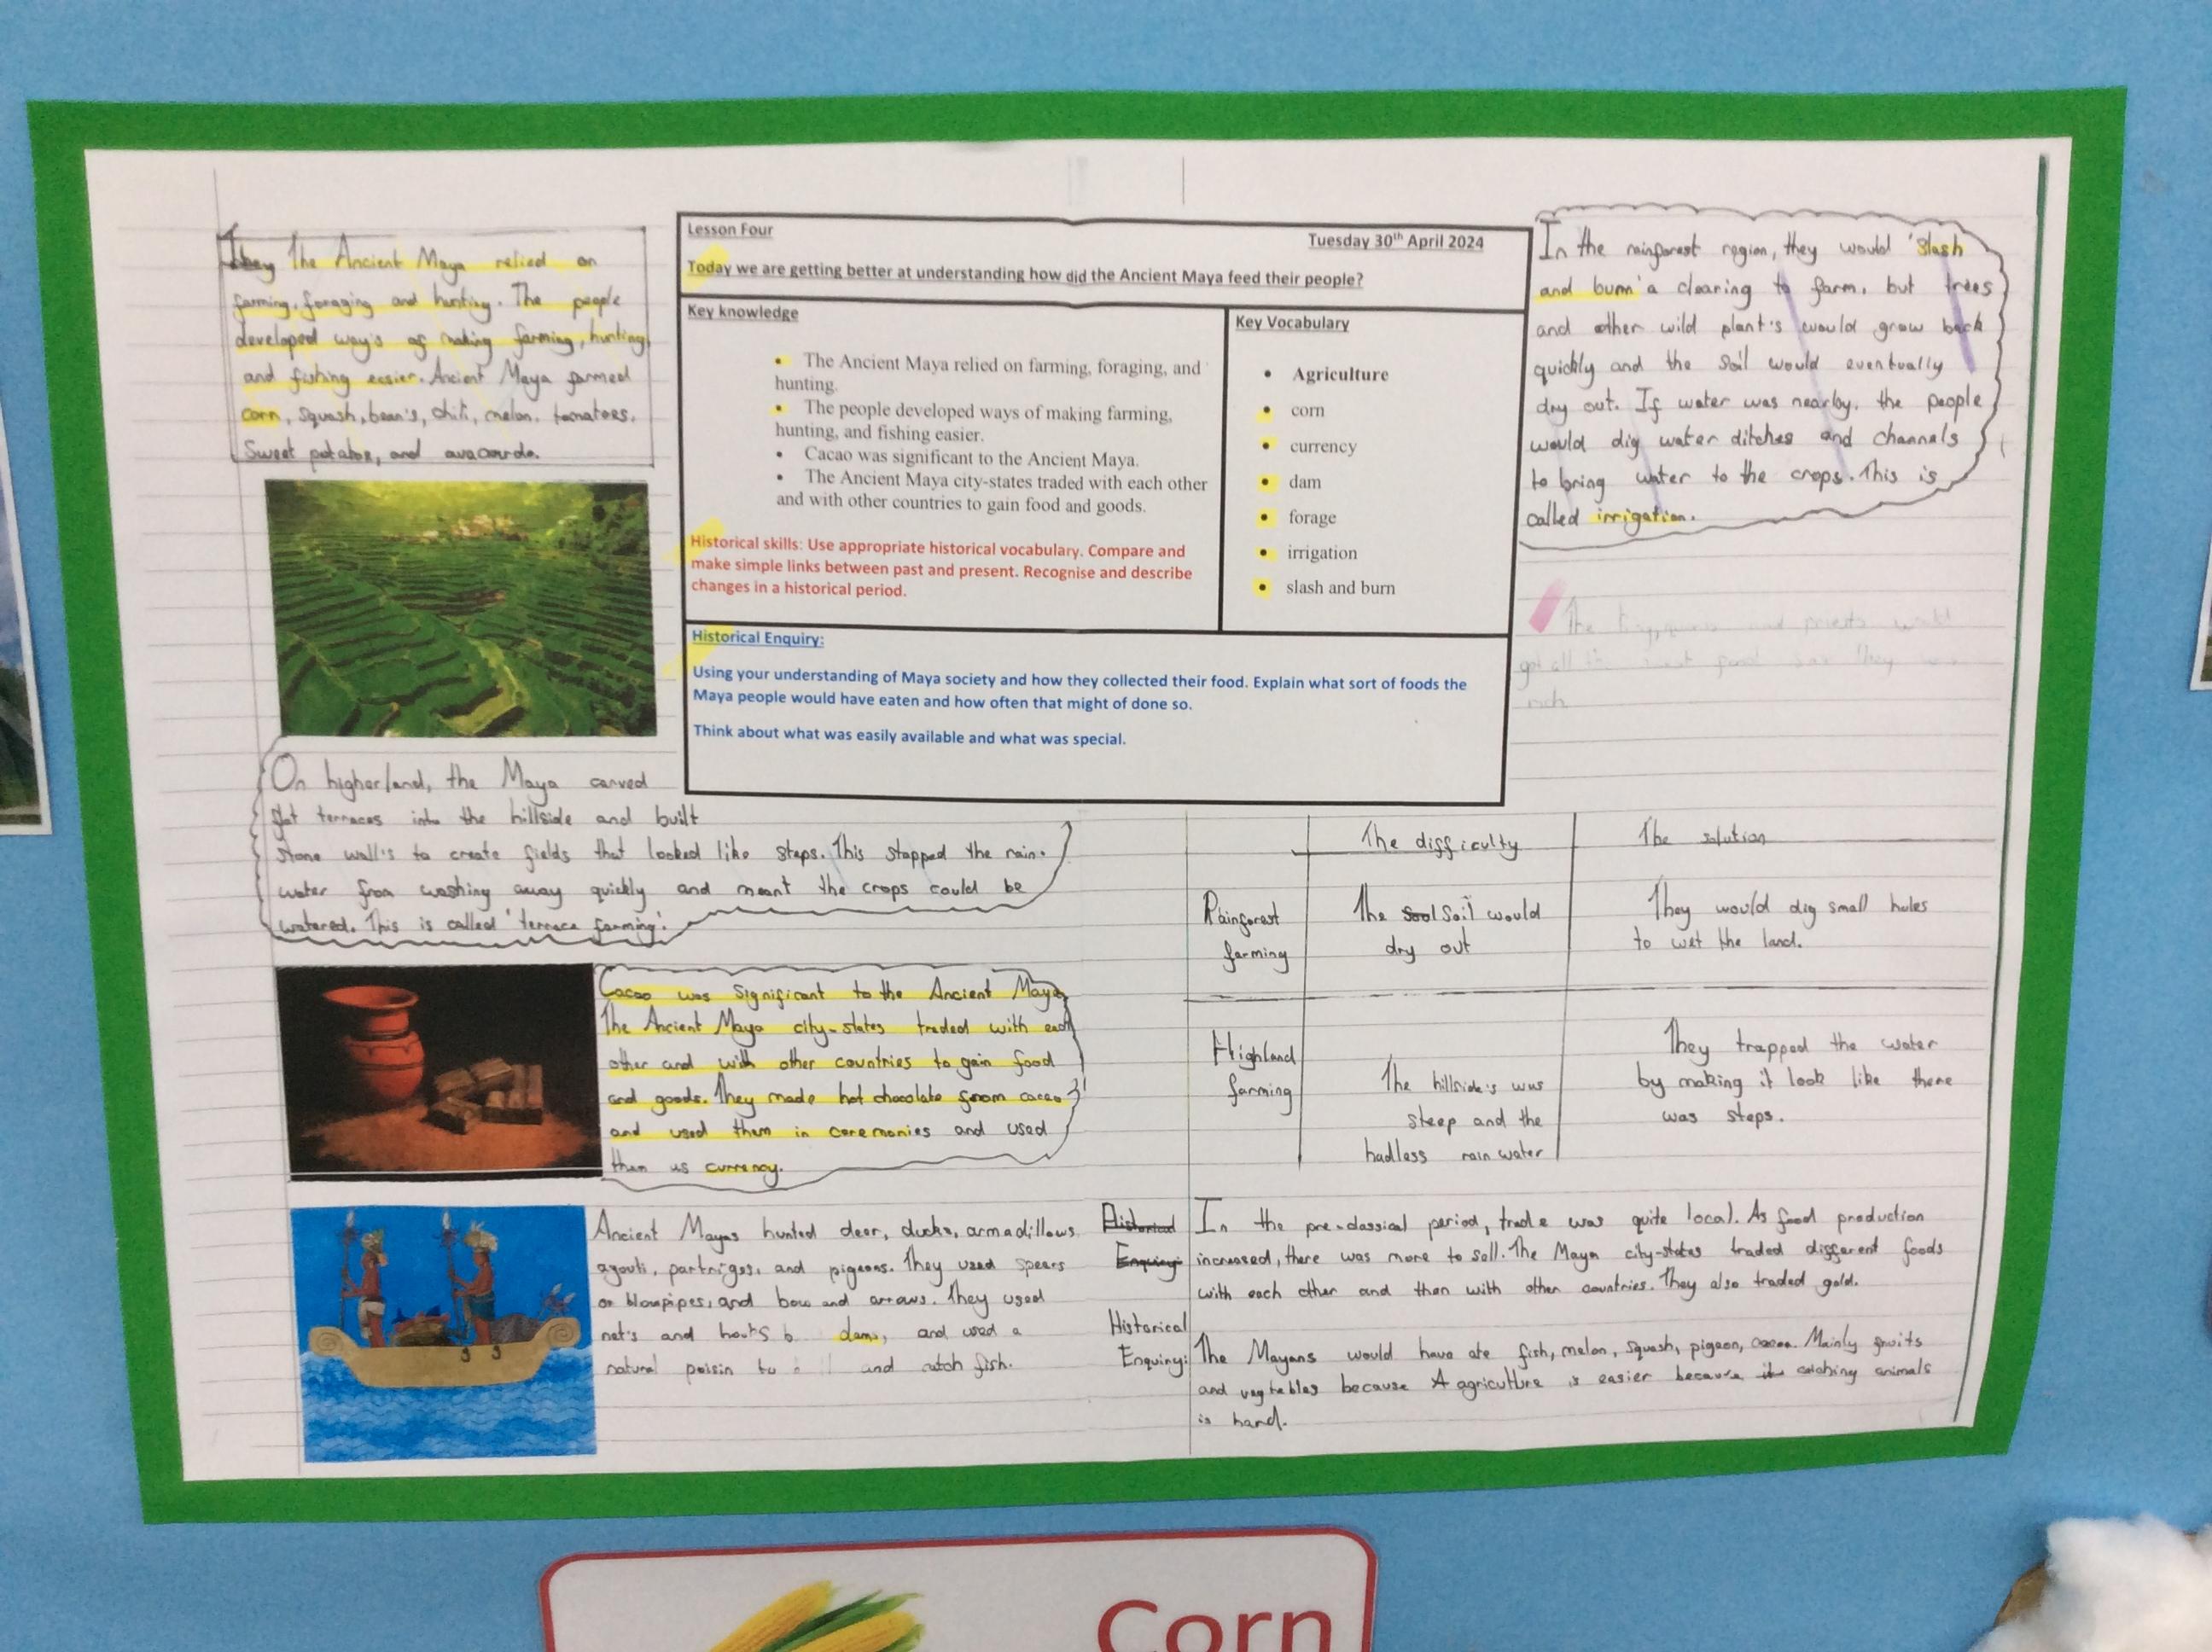 They The Ancient Maya relied on
farming, foraging and hunting. The people
developed way's of making farming, hunting
and fishing easier. Ancient Maya farmed
corn, squash, bean's, chili, melon, tomatoes,
Sweet potatoe, and avacardo.
On higher land, the Maya carved
flat terraces into the hillside and built
stone wall's to create fields that looked like steps. This stopped the rain-
water from washing away quickly and meant the crops could be
watered. This is called 'terrace farming'.
Cacao was significant to the Ancient Maya,
The Ancient Maya city-states traded with each
other and with other countries to gain food
and goods. They made hot chocolate from cacao
and used them in ceremonies and used
them as currency.
Ancient Mayas hunted deer, ducks, armadillows
agouti, partriges, and pigeons. They used spears
or blowpipes, and bow and arrows. They used
net's and dams, and used a
natural poisin to and catch fish.
Lesson Four
Tuesday 30th April 2024
Today we are getting better at understanding how did the Ancient Maya feed their people?
Key knowledge
• The Ancient Maya relied on farming, foraging, and
hunting.
• The people developed ways of making farming,
hunting, and fishing easier.
• Cacao was significant to the Ancient Maya.
• The Ancient Maya city-states traded with each other
and with other countries to gain food and goods.
Historical skills: Use appropriate historical vocabulary. Compare and
make simple links between past and present. Recognise and describe
changes in a historical period.
Key Vocabulary
• Agriculture
• corn
• currency
• dam
• forage
• irrigation
• slash and burn
Historical Enquiry:
Using your understanding of Maya society and how they collected their food. Explain what sort of foods the
Maya people would have eaten and how often that might of done so.
Think about what was easily available and what was special.
In the rainforest region, they would 'slash
and burn' a clearing to farm, but trees
and other wild plant's would grow back
quickly and the soil would eventually
dry out. If water was nearby, the people
would dig water ditches and channels
to bring water to the crops. This is
called irrigation.
The and priests would
got all the They
rich
The difficulty
The solution
Rainforest
farming
The Sool Soil would
dry out
They would dig small holes
to wet the land.
Highland
farming
The hillside's was
steep and the
hadless rain water
They trapped the water
by making it look like there
was steps.
Historical
Enquiry
In the pre-classical period, trade was quite local. As food production
increased, there was more to sell. The Maya city-states traded different foods
with each other and then with other countries. They also traded gold.
Historical
Enquiry:
The Mayans would have ate fish, melon, squash, pigeon, cacao. Mainly fruits
and vegtables because A agriculture is easier because it catching animals
is hard.
Corn